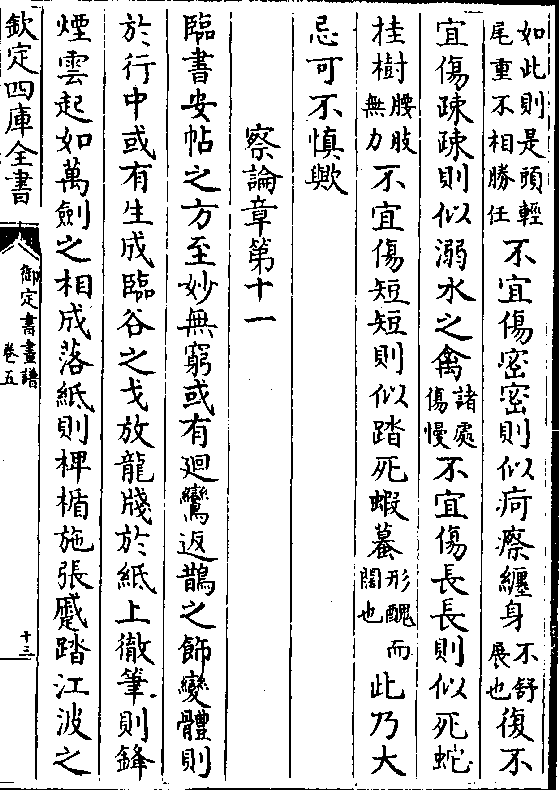 如此則是頭輕尾重不相勝任不宜傷密密則似疴瘵纏身不舒展也復不
宜傷疎疎則似溺水之禽諸處傷慢不宜傷長長則似死蛇
挂樹腰肢無力不宜傷短短則似踏死蝦蟇形醜而闊也此乃大
忌可不慎歟
察論章第十一
臨書安帖之方至妙無窮或有廻鸞返鵲之飾變體則
於行中或有生成臨谷之戈放龍牋於紙上徹筆則鋒
煙雲起如萬劍之相成落紙則椑楯施張蹙踏江波之
欽定四庫全書
御定書畫譜
卷五
十三